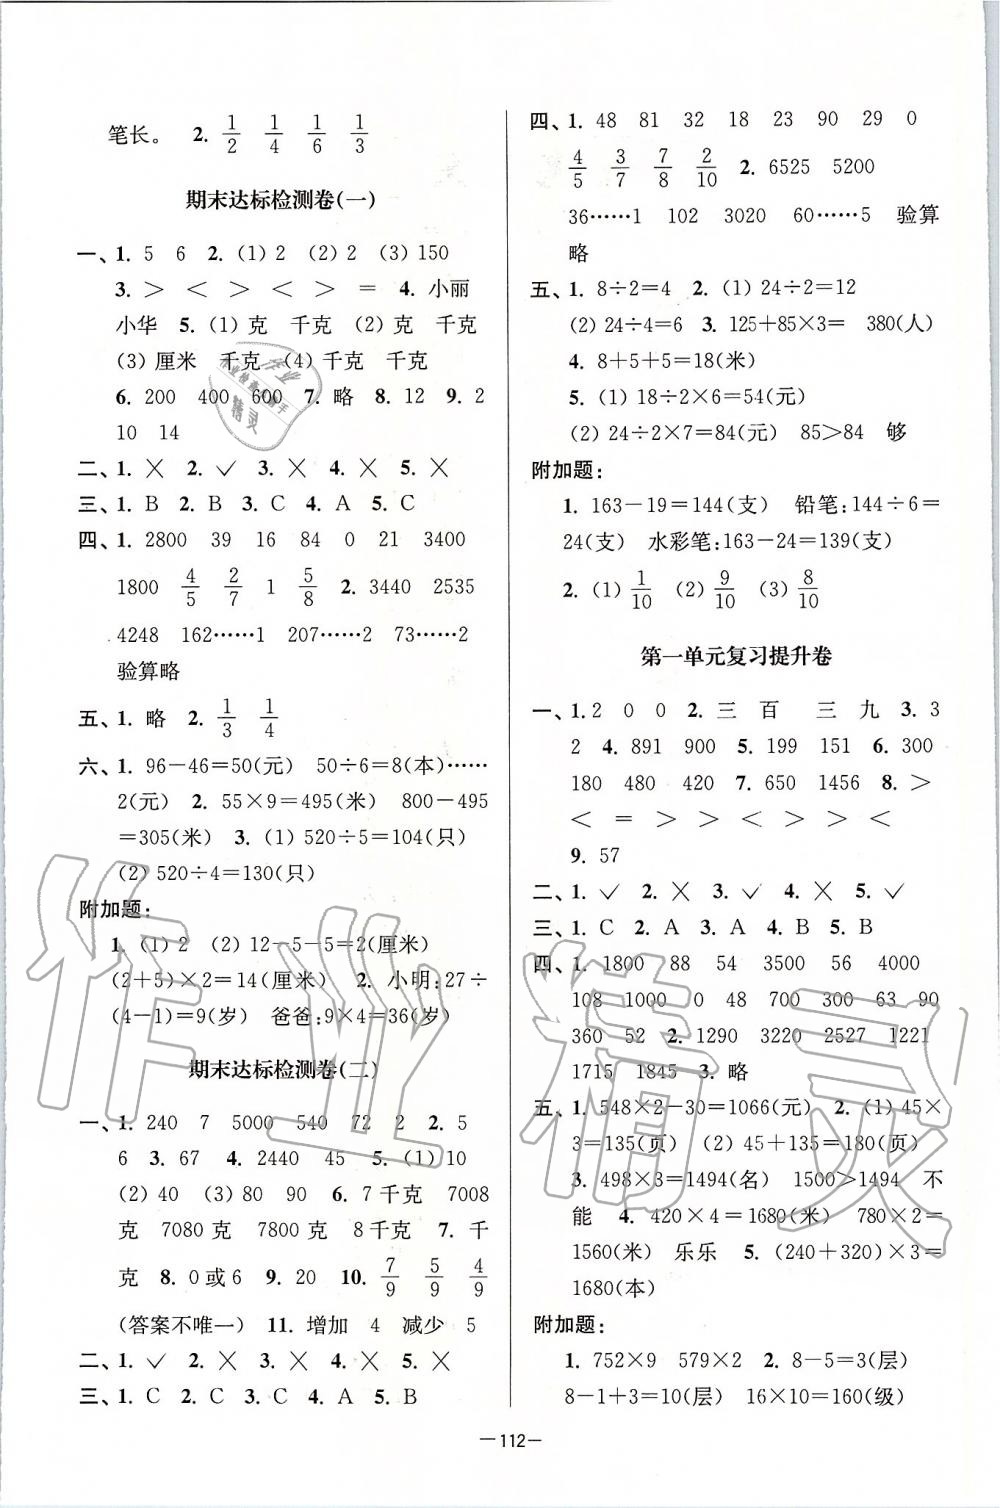 笔长。 2. 1/2 1/4 1/6 1/3
期末达标检测卷(一)
一、1. 5 6 2. (1) 2 (2) 2 (3) 150
3. > < > < > = 4. 小丽
小华 5. (1) 克 千克 (2) 克 千克
(3) 厘米 千克 (4) 千克 千克
6. 200 400 600 7. 略 8. 12 9. 2
10 14
二、1. × 2. ✓ 3. × 4. × 5. ×
三、1. B 2. B 3. C 4. A 5. C
四、1. 2800 39 16 84 0 21 3400
1800 4/5 2/7 1 5/8 2. 3440 2535
4248 162……1 207……2 73……2
验算略
五、1. 略 2. 1/3 1/4
六、1. 96-46=50(元) 50÷6=8(本)……
2(元) 2. 55×9=495(米) 800-495
=305(米) 3. (1) 520÷5=104(只)
(2) 520÷4=130(只)
附加题:
1. (1) 2 (2) 12-5-5=2(厘米)
(2+5)×2=14(厘米) 2. 小明:27÷
(4-1)=9(岁) 爸爸:9×4=36(岁)
期末达标检测卷(二)
一、1. 240 7 5000 540 72 2 2. 5
6 3. 67 4. 2440 45 5. (1) 10
(2) 40 (3) 80 90 6. 7千克 7008
克 7080克 7800克 8千克 7. 千
克 8. 0或6 9. 20 10. 7/9 5/9 4/9
(答案不唯一) 11. 增加 4 减少 5
二、1. ✓ 2. × 3. × 4. × 5. ×
三、1. C 2. C 3. C 4. A 5. B
四、1. 48 81 32 18 23 90 29 0
4/5 3/7 7/8 2/10 2. 6525 5200
36……1 102 3020 60……5 验算
略
五、1. 8÷2=4 2. (1) 24÷2=12
(2) 24÷4=6 3. 125+85×3= 380(人)
4. 8+5+5=18(米)
5. (1) 18÷2×6=54(元)
(2) 24÷2×7=84(元) 85>84 够
附加题:
1. 163-19=144(支) 铅笔:144÷6=
24(支) 水彩笔:163-24=139(支)
2. (1) 1/10 (2) 9/10 (3) 8/10
第一单元复习提升卷
一、1. 2 0 0 2. 三 百 三 九 3. 3
2 4. 891 900 5. 199 151 6. 300
180 480 420 7. 650 1456 8. >
< = > > < > > <
9. 57
二、1. ✓ 2. × 3. ✓ 4. × 5. ✓
三、1. C 2. A 3. A 4. B 5. B
四、1. 1800 88 54 3500 56 4000
108 1000 0 48 700 300 63 90
360 52 2. 1290 3220 2527 1221
1715 1845 3. 略
五、1. 548×2-30=1066(元) 2. (1) 45×
3=135(页) (2) 45+135=180(页)
3. 498×3=1494(名) 1500>1494 不
能 4. 420×4=1680(米) 780×2=
1560(米) 乐乐 5. (240+320)×3=
1680(本)
附加题:
1. 752×9 579×2 2. 8-5=3(层)
8-1+3=10(层) 16×10=160(级)
—112—
作业精灵